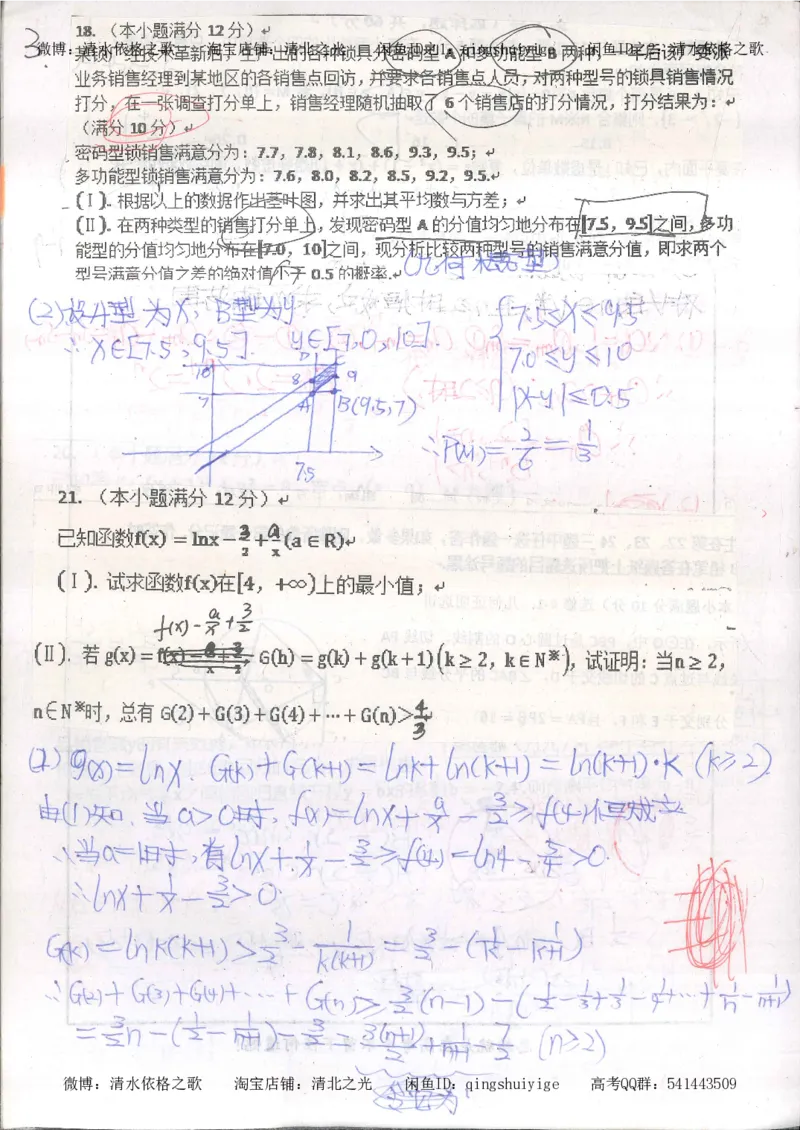 3
18. （本小题满分 12 分）
某锁厂经技术革新后，生产出的各种锁具分密码型 A 和多功能型 B 两种，一年后该厂要派
微博：清水依格之歌 淘宝店铺：清北之光 闲鱼ID之1：qingshuiyige 闲鱼ID之2：清水依格之歌
业务销售经理到某地区的各销售点回访，并要求各销售点人员，对两种型号的锁具销售情况
打分，在一张调查打分单上，销售经理随机抽取了 6 个销售店的打分情况，打分结果为：
（满分 10 分）
密码型锁销售满意分为：7.7，7.8，8.1，8.6，9.3，9.5；
多功能型锁销售满意分为：7.6，8.0，8.2，8.5，9.2，9.5.
(Ⅰ). 根据以上的数据作出茎叶图，并求出其平均数与方差；
(Ⅱ). 在两种类型的销售打分单上，发现密码型 A 的分值均匀地分布在[7.5，9.5]之间，多功
能型的分值均匀地分布在[7.0，10]之间，现分析比较两种型号的销售满意分值，即求两个
型号满意分值之差的绝对值小于 0.5 的概率.
(几何概型)
(2)设A型为X，B型为y
∴X∈[7.5,9.5]. y∈[7.0,10].
{7.5≤X≤9.5
7.0≤y≤10
|X-y|≤0.5
∴P(M)=2/6=1/3
10
8
9
7
A
B(9.5,7)
7.5
21. （本小题满分 12 分）
已知函数f(x) = lnx − 3/2 + a/x (a ∈ R)
(Ⅰ). 试求函数f(x)在[4，+∞)上的最小值；
f(x)-a/x+3/2
(Ⅱ). 若 g(x) = f(x) − a/x + 3/2, G(h) = g(k) + g(k + 1)(k ≥ 2，k ∈ N※)，试证明：当n ≥ 2，
n∈N※时，总有 G(2)+G(3)+G(4)+⋯+G(n)>4/3
g(x)=lnx. G(k)+G(k+1)=lnk+ln(k+1)=ln(k+1)·k (k≥2)
由(1)知，当a>0时，f(x)=lnx+a/x-3/2≥f(4)恒成立
∴当a=1时，有lnx+1/x-3/2≥f(4)=ln4-5/4>0.
∴lnx+1/x-3/2>0.
G(k)=lnk(k+1)>3/2-1/k(k+1)=3/2-(1/k-1/k+1)
∴G(2)+G(3)+G(4)+⋯+G(n)≥3/2(n-1)-(1/2-1/3+1/3-1/4+⋯+1/n-1/n+1)
=3/2n-(1/2-1/n+1)-3/2=3(n+1)/2+1/n+1-7/2 (n≥2)
微博：清水依格之歌 淘宝店铺：清北之光 闲鱼ID：qingshuiyige 高考QQ群：541443509